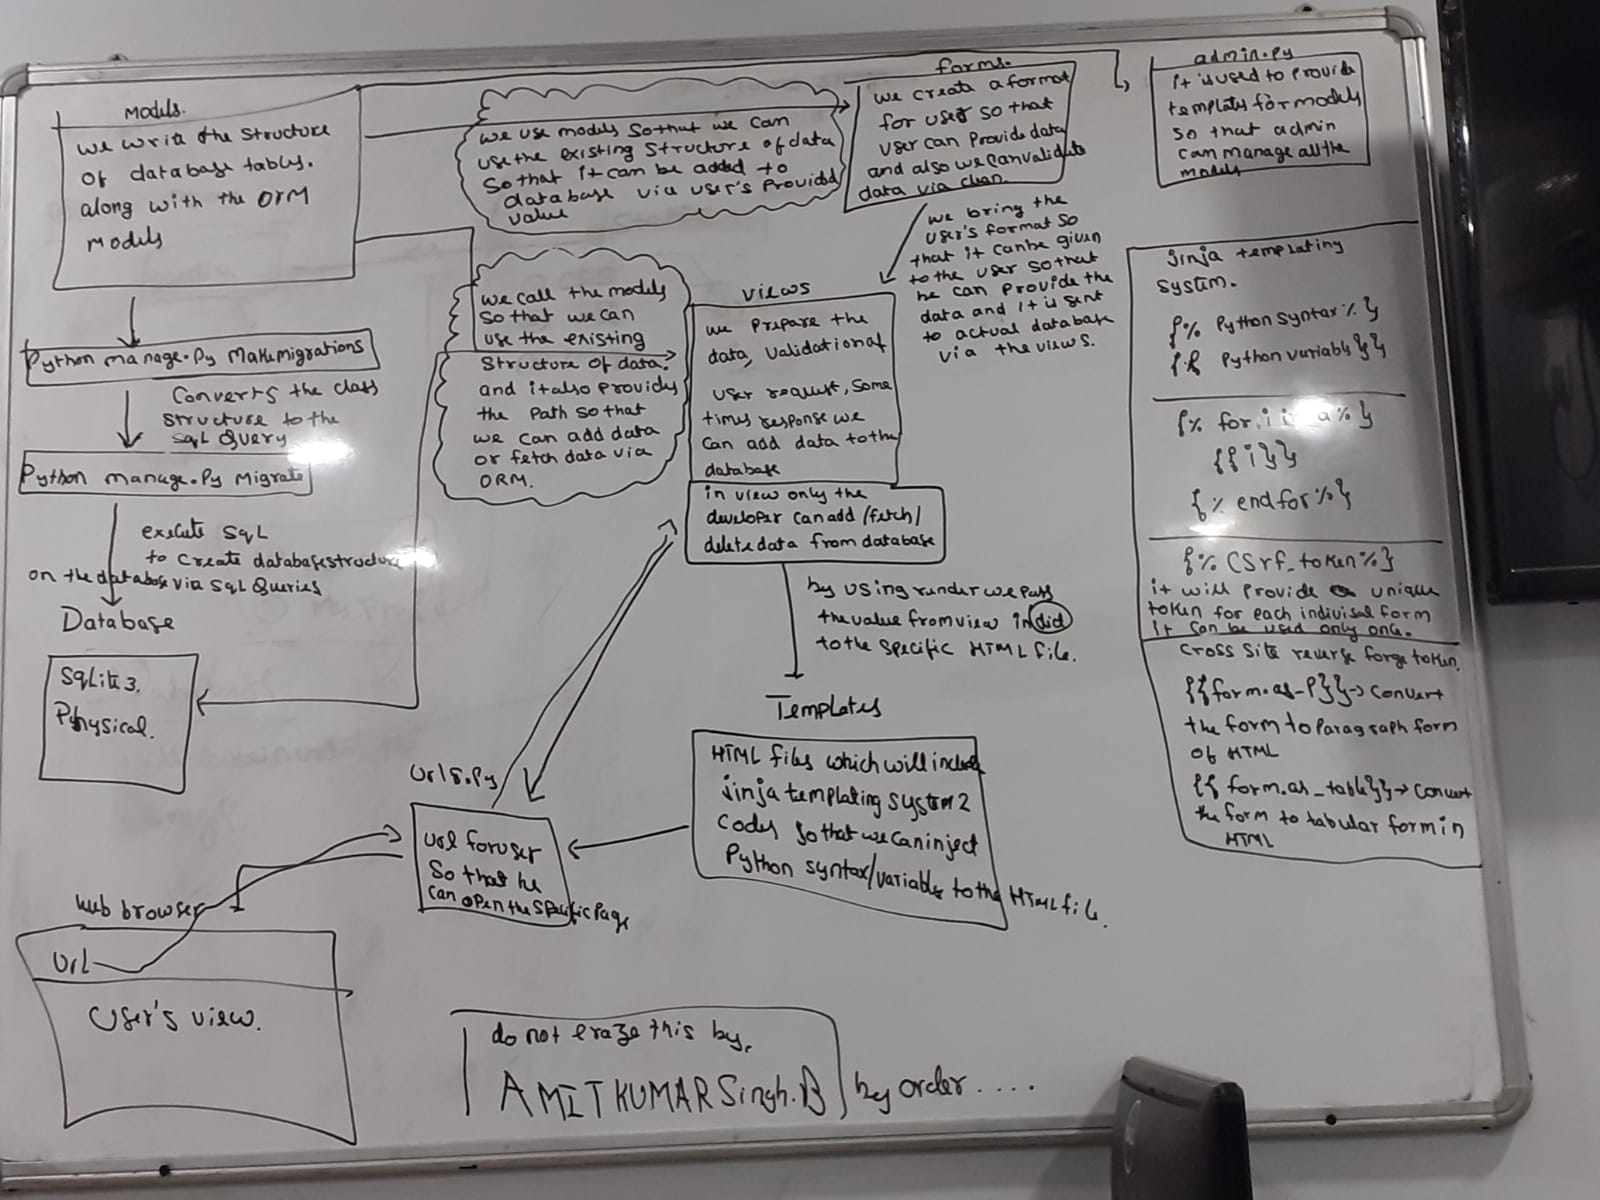 Models.
we write the structure
of database tables.
along with the ORM
models
Python manage.py Makemigrations
Converts the class
structure to the
SQL Query
Python manage.py Migrate
execute SQL
to create database structure
on the database via SQL Queries
Database
Sqlite3.
Physical.
we use models so that we can
use the existing structure of data
so that it can be added to
database via user's provided
value
forms.
we create a format
for user so that
user can provide data
and also we can validate
data via clean.
admin.py
it is used to provide
templates for models
so that admin
can manage all the
models
we bring the
user's format so
that it can be given
to the user so that
he can provide the
data and it is sent
to actual database
via the views.
we call the models
so that we can
use the existing
structure of data.
and it also provides
the path so that
we can add data
or fetch data via
ORM.
views
we prepare the
data, validational
user request, some
times response we
can add data to the
database
in view only the
developer can add/fetch/
delete data from database
by using render we pass
the value from view in dict
to the specific HTML file.
Templates
HTML files which will include
jinja templating system 2
codes so that we can inject
Python syntax/variables to the HTML file.
urls.py
url for user
so that he
can open the specific page
web browser
url
User's view.
jinja templating
system.
{% Python syntax %}
{{ Python variable }}
{% for i in a %}
{{i}}
{% endfor %}
{% csrf_token %}
it will provide a unique
token for each indivisal form
it can be used only once.
cross site reverse forge token.
{{form.as_p}} → convert
the form to paragraph form
of HTML
{{ form.as_table}} → convert
the form to tabular form in
HTML
do not eraze this by,
AMIT KUMAR Singh.B by order ....